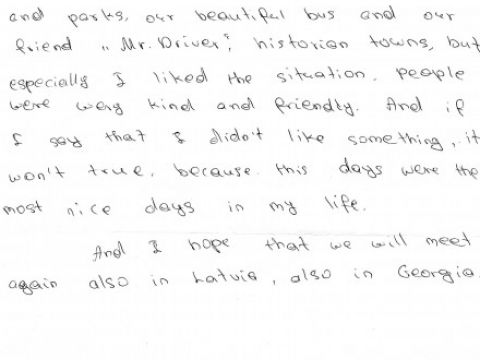 and parks, our beautiful bus and our
friend „Mr. Driver", historian towns, but
especially I liked the situation, people
were wery kind and friendly. And if
I say that I didn't like something, it
won't true, because this days were the
most nice days in my life.
And I hope that we will meet
again also in Latvia, also in Georgia.